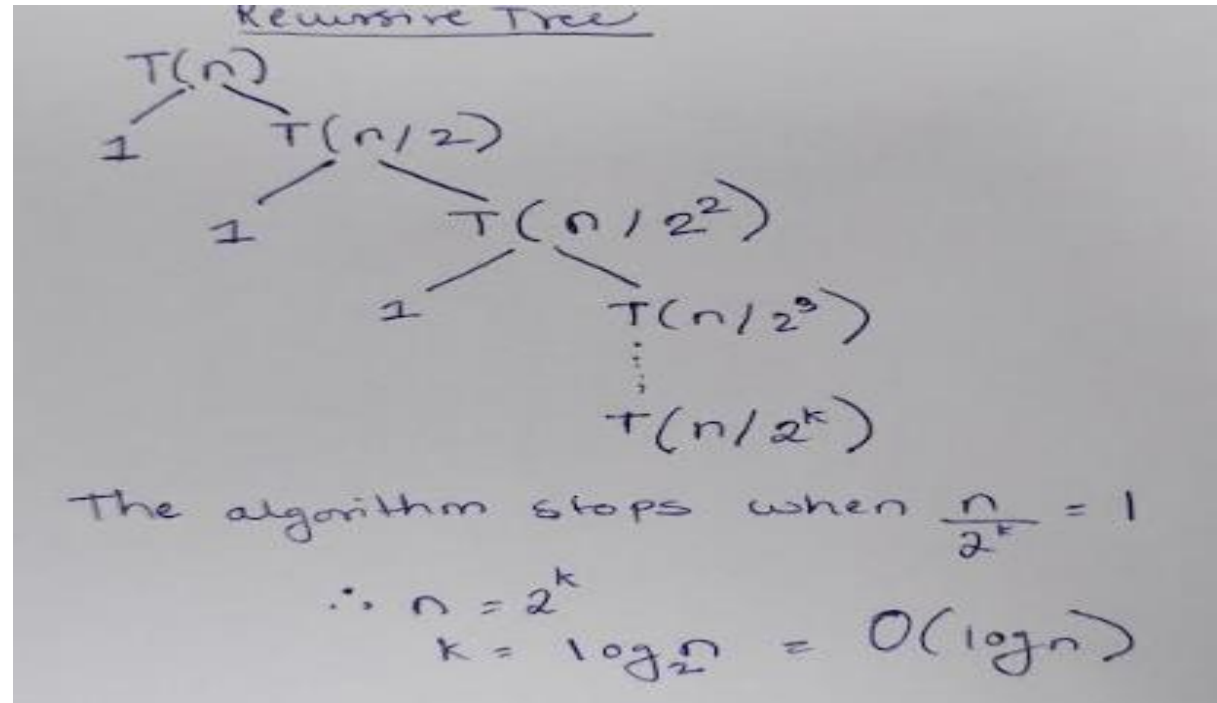 Recursive Tree
T(n)
1 T(n/2)
1 T(n/2²)
1 T(n/2³)
T(n/2ᵏ)
The algorithm stops when n/2ᵏ = 1
∴ n = 2ᵏ
k = log₂n = O(logn)